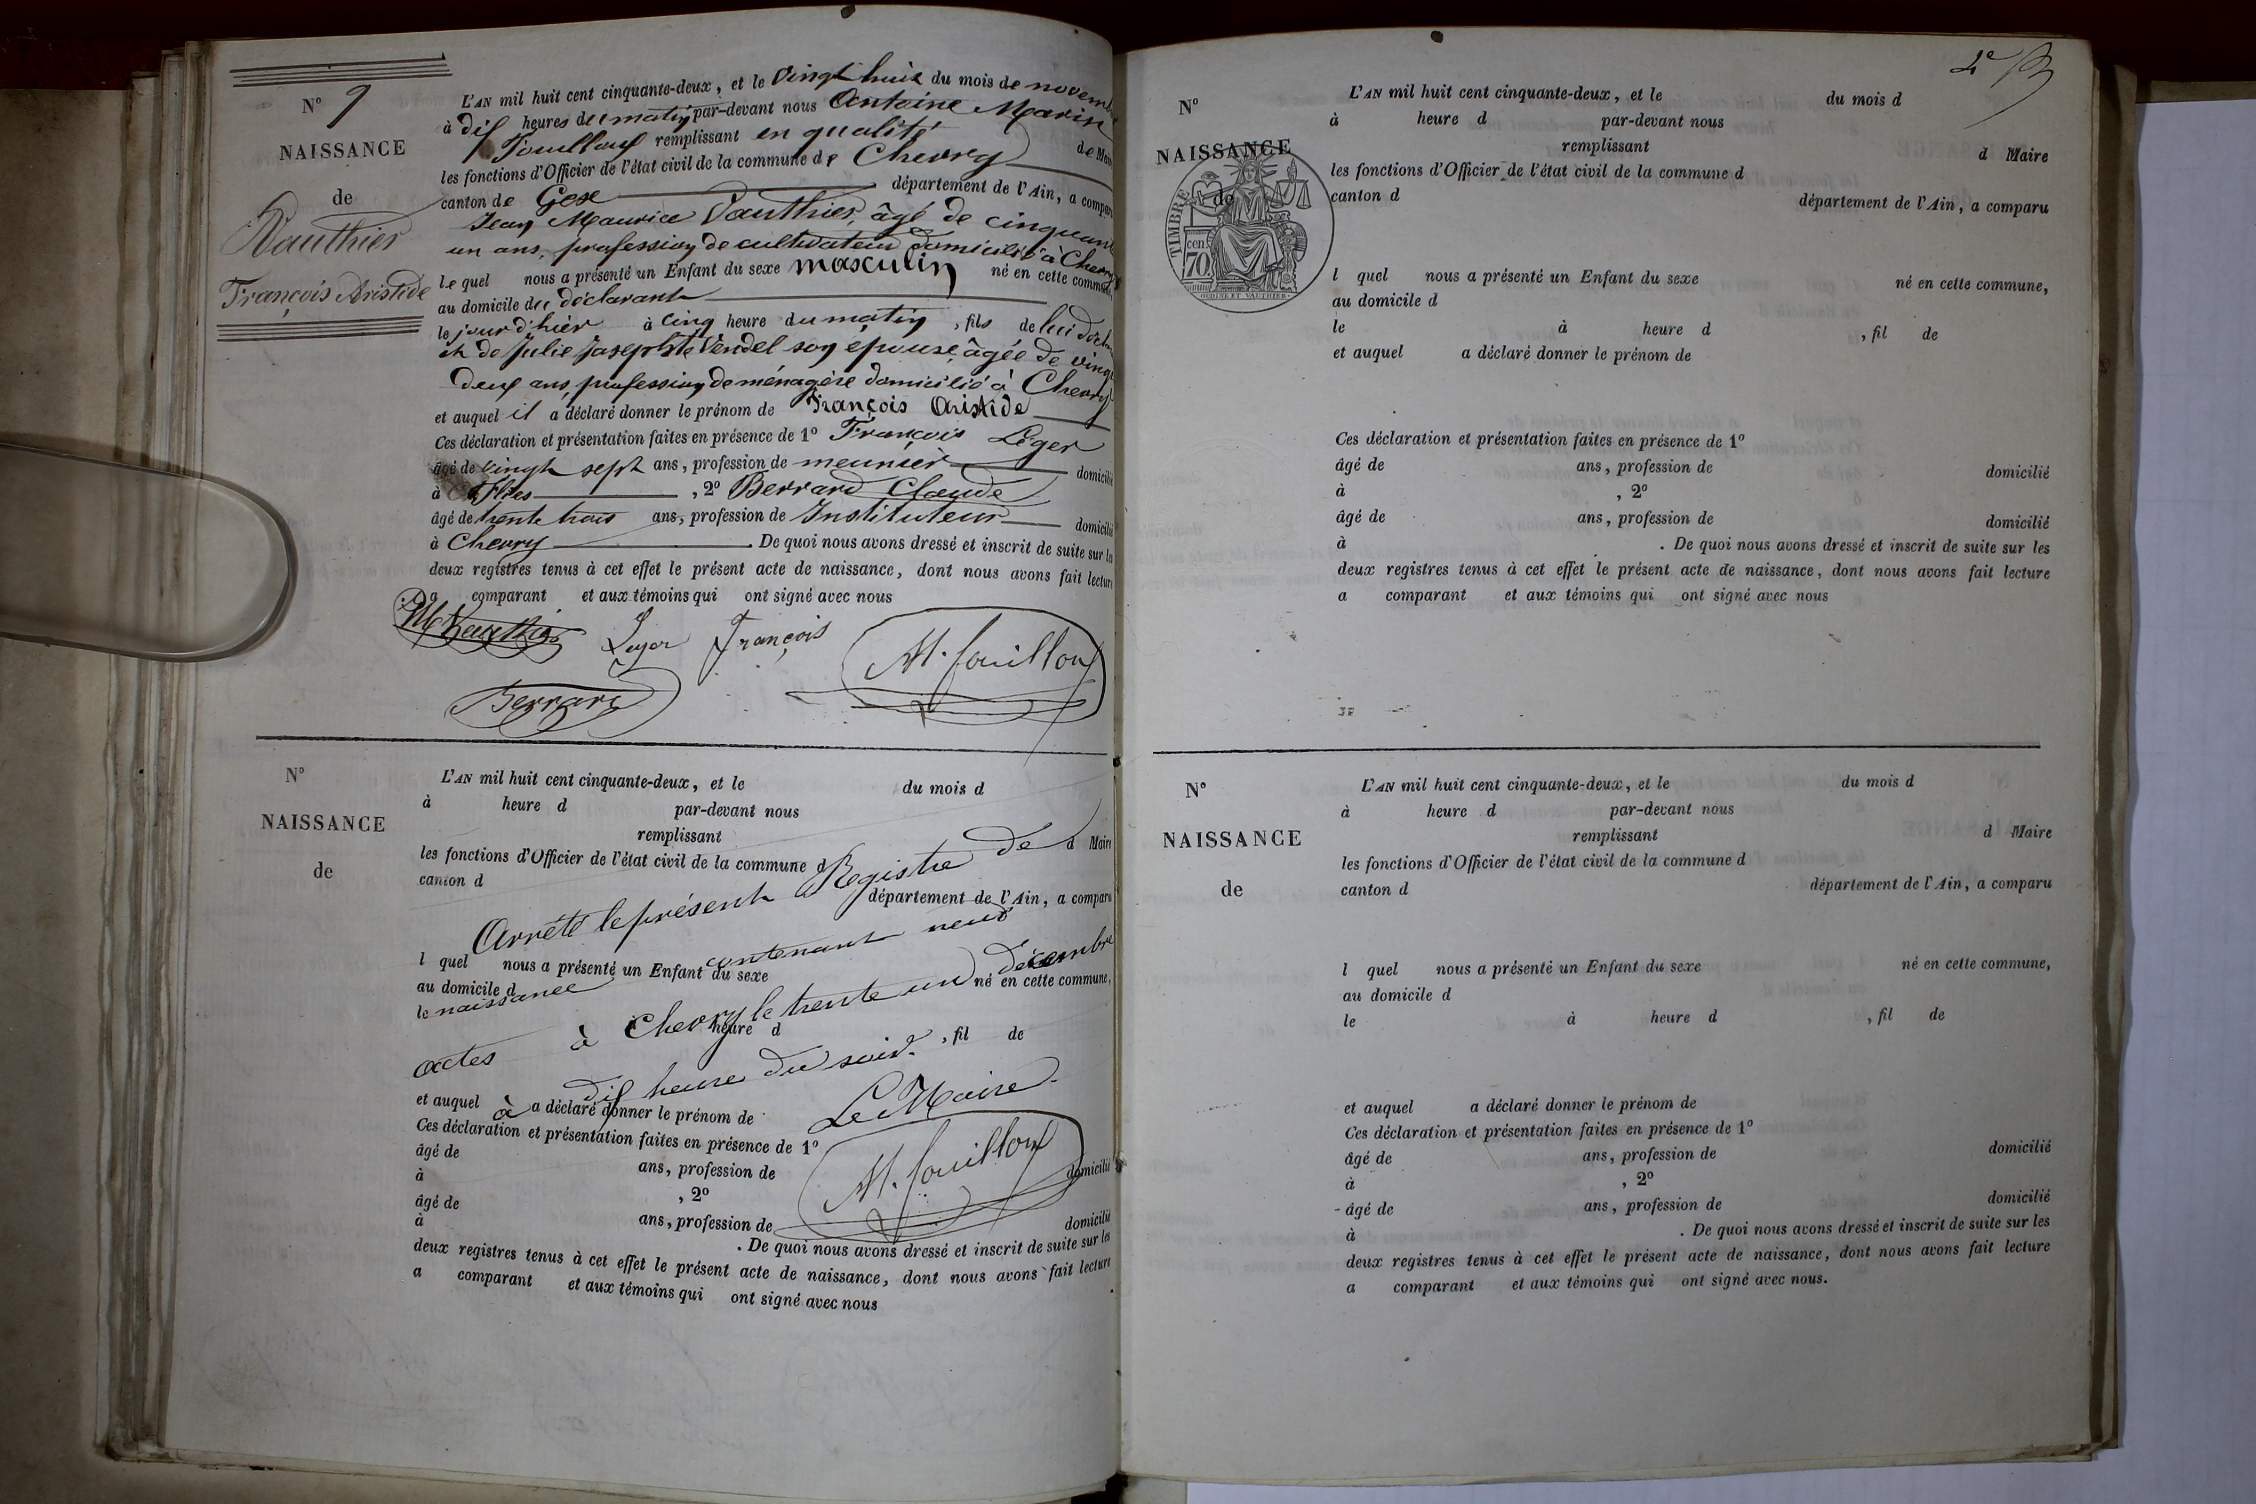 N° 9
NAISSANCE
de
Pauthier
François Aristide
L'AN mil huit cent cinquante-deux, et le vingt huit du mois de novem
à dix heures du matin par-devant nous Antoine Marin
Fouilloux remplissant en qualité de Mai
les fonctions d'Officier de l'état civil de la commune de Chevry
canton de Gex département de l'Ain, a compar
Jean Maurice Pauthier, âgé de cinquant
un ans, profession de cultivateur domicilié à Chevry
lequel nous a présenté un Enfant du sexe masculin né en cette commune,
au domicile du déclarant
le jour d'hier à cinq heure du matin, fils de lui décla
et de Julie Josephte Vendel son épouse, âgée de vingt
deux ans, profession de ménagère domicilié à Chevry
et auquel il a déclaré donner le prénom de François Aristide
Ces déclaration et présentation faites en présence de 1° François Léger
âgé de vingt sept ans, profession de meunier domicilié
à Flies, 2° Berrard Claude
âgé de trente trois ans, profession de Instituteur domicilié
à Chevry. De quoi nous avons dressé et inscrit de suite sur les
deux registres tenus à cet effet le présent acte de naissance, dont nous avons fait lecture
a comparant et aux témoins qui ont signé avec nous
JM Pauthier Leger François M. fouilloux
Berrard
N°
NAISSANCE
de
L'AN mil huit cent cinquante-deux, et le du mois d
à heure d par-devant nous
remplissant d Maire
les fonctions d'Officier de l'état civil de la commune d
canton d département de l'Ain, a comparu
Arrêté le présent Registre de
l quel nous a présenté un Enfant du sexe né en cette commune,
au domicile d
naissance contenant neuf
le à heure d, fil de
actes à Chevry le trente un décembre
à dix heure du soir.
et auquel a déclaré donner le prénom de
Le Maire.
Ces déclaration et présentation faites en présence de 1°
M. fouilloux
âgé de ans, profession de domicilié
à, 2°
âgé de ans, profession de domicilié
à. De quoi nous avons dressé et inscrit de suite sur les
deux registres tenus à cet effet le présent acte de naissance, dont nous avons fait lecture
a comparant et aux témoins qui ont signé avec nous
N°
NAISSANCE
de
TIMBRE
cen.
70
L'AN mil huit cent cinquante-deux, et le du mois d
à heure d par-devant nous
remplissant d Maire
les fonctions d'Officier de l'état civil de la commune d
canton d département de l'Ain, a comparu
l quel nous a présenté un Enfant du sexe né en cette commune,
au domicile d
le à heure d, fil de
et auquel a déclaré donner le prénom de
Ces déclaration et présentation faites en présence de 1°
âgé de ans, profession de domicilié
à, 2°
âgé de ans, profession de domicilié
à. De quoi nous avons dressé et inscrit de suite sur les
deux registres tenus à cet effet le présent acte de naissance, dont nous avons fait lecture
a comparant et aux témoins qui ont signé avec nous
N°
NAISSANCE
de
L'AN mil huit cent cinquante-deux, et le du mois d
à heure d par-devant nous
remplissant d Maire
les fonctions d'Officier de l'état civil de la commune d
canton d département de l'Ain, a comparu
l quel nous a présenté un Enfant du sexe né en cette commune,
au domicile d
le à heure d, fil de
et auquel a déclaré donner le prénom de
Ces déclaration et présentation faites en présence de 1°
âgé de ans, profession de domicilié
à, 2°
âgé de ans, profession de domicilié
à. De quoi nous avons dressé et inscrit de suite sur les
deux registres tenus à cet effet le présent acte de naissance, dont nous avons fait lecture
a comparant et aux témoins qui ont signé avec nous.